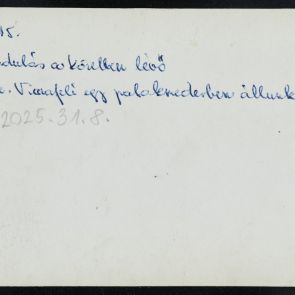 15.
ndulás a közelben lévő
. Visszafelé egy patakmederben állunk
2025.31.8.